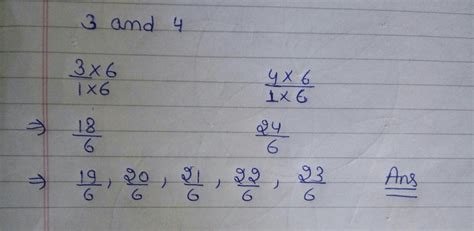 3 and 4
3×6/1×6 4×6/1×6
⇒ 18/6 24/6
⇒ 19/6, 20/6, 21/6, 22/6, 23/6 Ans